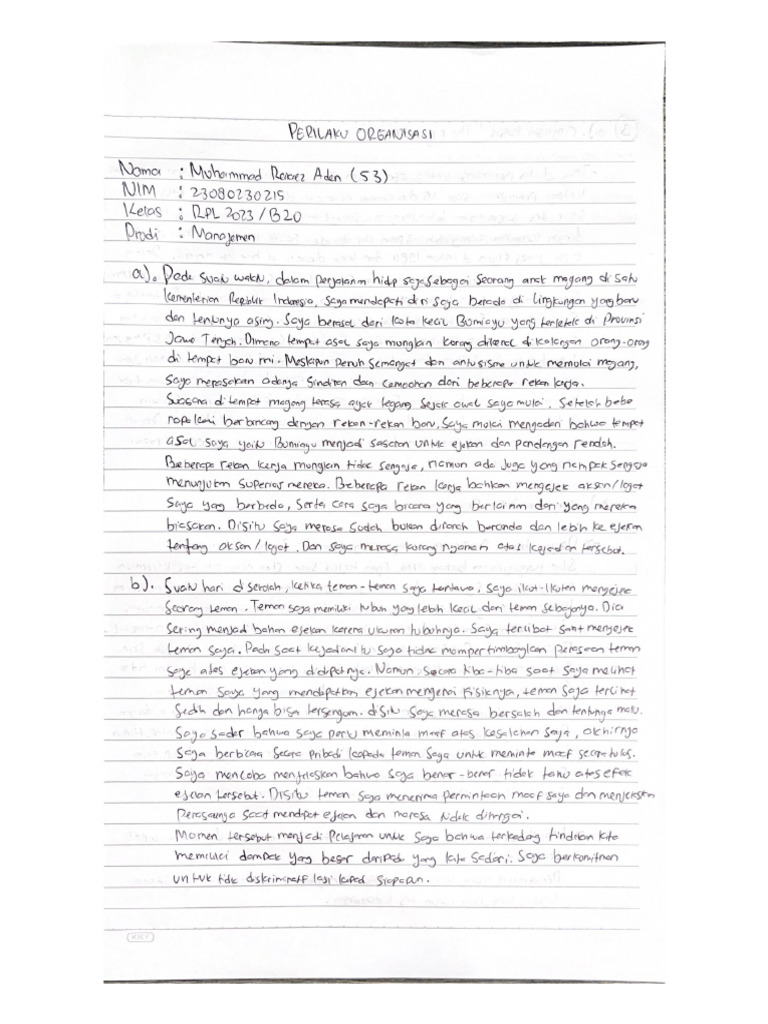 PERILAKU ORGANISASI
Nama : Muhammad Aden (53)
NIM : 23080230215
Kelas : RPL 2023 / B20
Prodi : Manajemen
a). Pada suatu waktu, dalam perjalanan hidup saya sebagai seorang anak magang di satu
kementerian Republik Indonesia, saya mendapati diri saya berada di lingkungan yang baru
dan tentunya asing. Saya berasal dari kota kecil Bumiayu yang terletak di Provinsi
Jawa Tengah. Dimana tempat asal saya mungkin kurang dikenal di kalangan orang-orang
di tempat baru ini. Meskipun penuh semangat dan antusisme untuk memulai magang,
saya merasakan adanya sindiran dan cemoohan dari beberapa rekan kerja.
Suasana di tempat magang terasa agak tegang sejak awal saya mulai. Setelah bebe
rapa kami berbincang dengan rekan-rekan baru, saya mulai mengadari bahwa tempat
asal saya yaitu Bumiayu menjadi sasaran untuk ejekan dan pandangan rendah.
Beberapa rekan kerja mungkin tidak sengaja, namun ada juga yang nampak sengaja
menunjukan superior mereka. Beberapa rekan kerja bahkan mengejek aksen/logat
saya yang berbeda, serta cara saya bicara yang berlainan dari yang mereka
biasakan. Disitu saya merasa sudah bukan diranah bercanda dan lebih ke ejekan
tentang aksen / logat. Dan saya merasa kurang nyaman atas kejadian tersebut.
b). Suatu hari di sekolah, ketika teman-teman saya tertawa, saya ikut-ikutan mengejek
seorang teman. Teman saya memiliki tubuh yang lebih kecil dari teman sebayanya. Dia
sering menjadi bahan ejekan karena ukuran tubuhnya. Saya terlibat saat mengejek
teman saya. Pada saat kejadian itu saya tidak mempertimbangkan perasaan teman
saya atas ejekan yang didapatnya. Namun, secara tiba-tiba saat saya melihat
teman saya yang mendapatkan ejekan mengenai fisiknya, teman saya terlihat
sedih dan hanya bisa tersenyum. disitu saya merasa bersalah dan tentunya malu.
Saya sadar bahwa saya perlu meminta maaf atas kesalahan saya, akhirnya
saya berbicara secara pribadi kepada teman saya untuk meminta maaf secara tulus.
Saya mencoba menjelaskan bahwa saya benar-benar tidak tahu atas efek
ejekan tersebut. Disitu teman saya menerima permintaan maaf saya dan menjelaskan
perasaanya saat mendapat ejekan dan merasa tidak dihargai.
Momen tersebut menjadi pelajaran untuk saya bahwa terkadang tindakan kita
memiliki dampak yang besar daripada yang kita sadari. Saya berkomitmen
untuk tidak diskriminatif lagi kepada siapapun.
KIKY